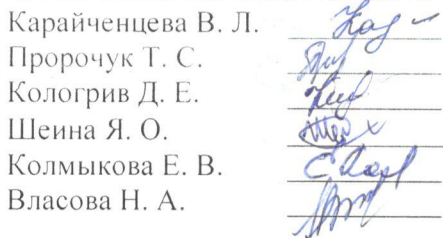 Карайченцева В. Л.
Пророчук Т. С.
Кологрив Д. Е.
Шеина Я. О.
Колмыкова Е. В.
Власова Н. А.